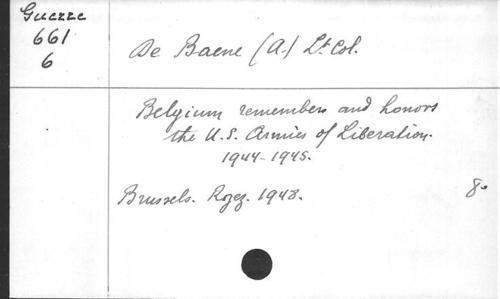 Guerre
661
6
De Baene (A.) Lt Col.
Belgium remembers and honors
the U.S. Armies of Liberation.
1944-1945.
Brussels. Rozez. 1948. 8°